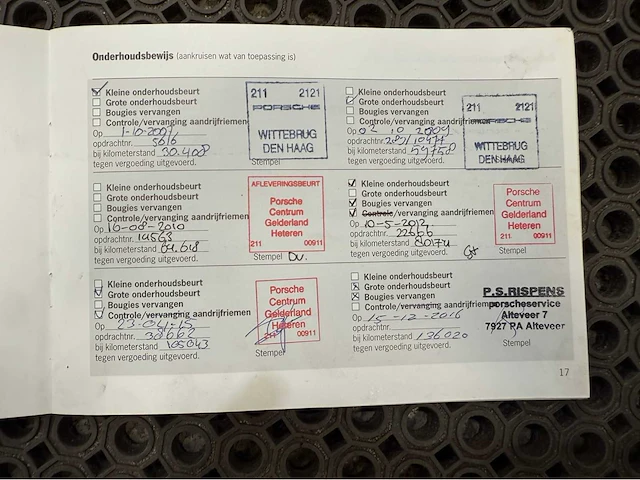 Onderhoudsbewijs (aankruisen wat van toepassing is)
Kleine onderhoudsbeurt
Grote onderhoudsbeurt
Bougies vervangen
Controle/vervanging aandrijfriemen
Op 1-10-2007
opdrachtnr. 5616
bij kilometerstand 30.408
tegen vergoeding uitgevoerd.
Stempel
211 2121
PORSCHE
WITTEBRUG
DEN HAAG
Kleine onderhoudsbeurt
Grote onderhoudsbeurt
Bougies vervangen
Controle/vervanging aandrijfriemen
Op 02 10 2009
opdrachtnr.
bij kilometerstand 59758
tegen vergoeding uitgevoerd.
211 2121
PORSCHE
WITTEBRUG
DEN HAAG
Kleine onderhoudsbeurt
Grote onderhoudsbeurt
Bougies vervangen
Controle/vervanging aandrijfriemen
Op 16-08-2010
opdrachtnr. 14563
bij kilometerstand 64.618
tegen vergoeding uitgevoerd.
Stempel
AFLEVERINGSBEURT
Porsche
Centrum
Gelderland
Heteren
211 00911
Kleine onderhoudsbeurt
Grote onderhoudsbeurt
Bougies vervangen
Controle/vervanging aandrijfriemen
Op 10-5-2012
opdrachtnr. 22656
bij kilometerstand 80174
tegen vergoeding uitgevoerd.
Stempel
Porsche
Centrum
Gelderland
Heteren
211 00911
Kleine onderhoudsbeurt
Grote onderhoudsbeurt
Bougies vervangen
Controle/vervanging aandrijfriemen
Op 23-04-15
opdrachtnr. 30662
bij kilometerstand 105043
tegen vergoeding uitgevoerd.
Stempel
Porsche
Centrum
Gelderland
Heteren
211 00911
Kleine onderhoudsbeurt
Grote onderhoudsbeurt
Bougies vervangen
Controle/vervanging aandrijfriemen
Op 15-12-2016
opdrachtnr.
bij kilometerstand 136020
tegen vergoeding uitgevoerd.
Stempel
P.S.RISPENS
porscheservice
Alteveer 7
7927 PA Alteveer
17